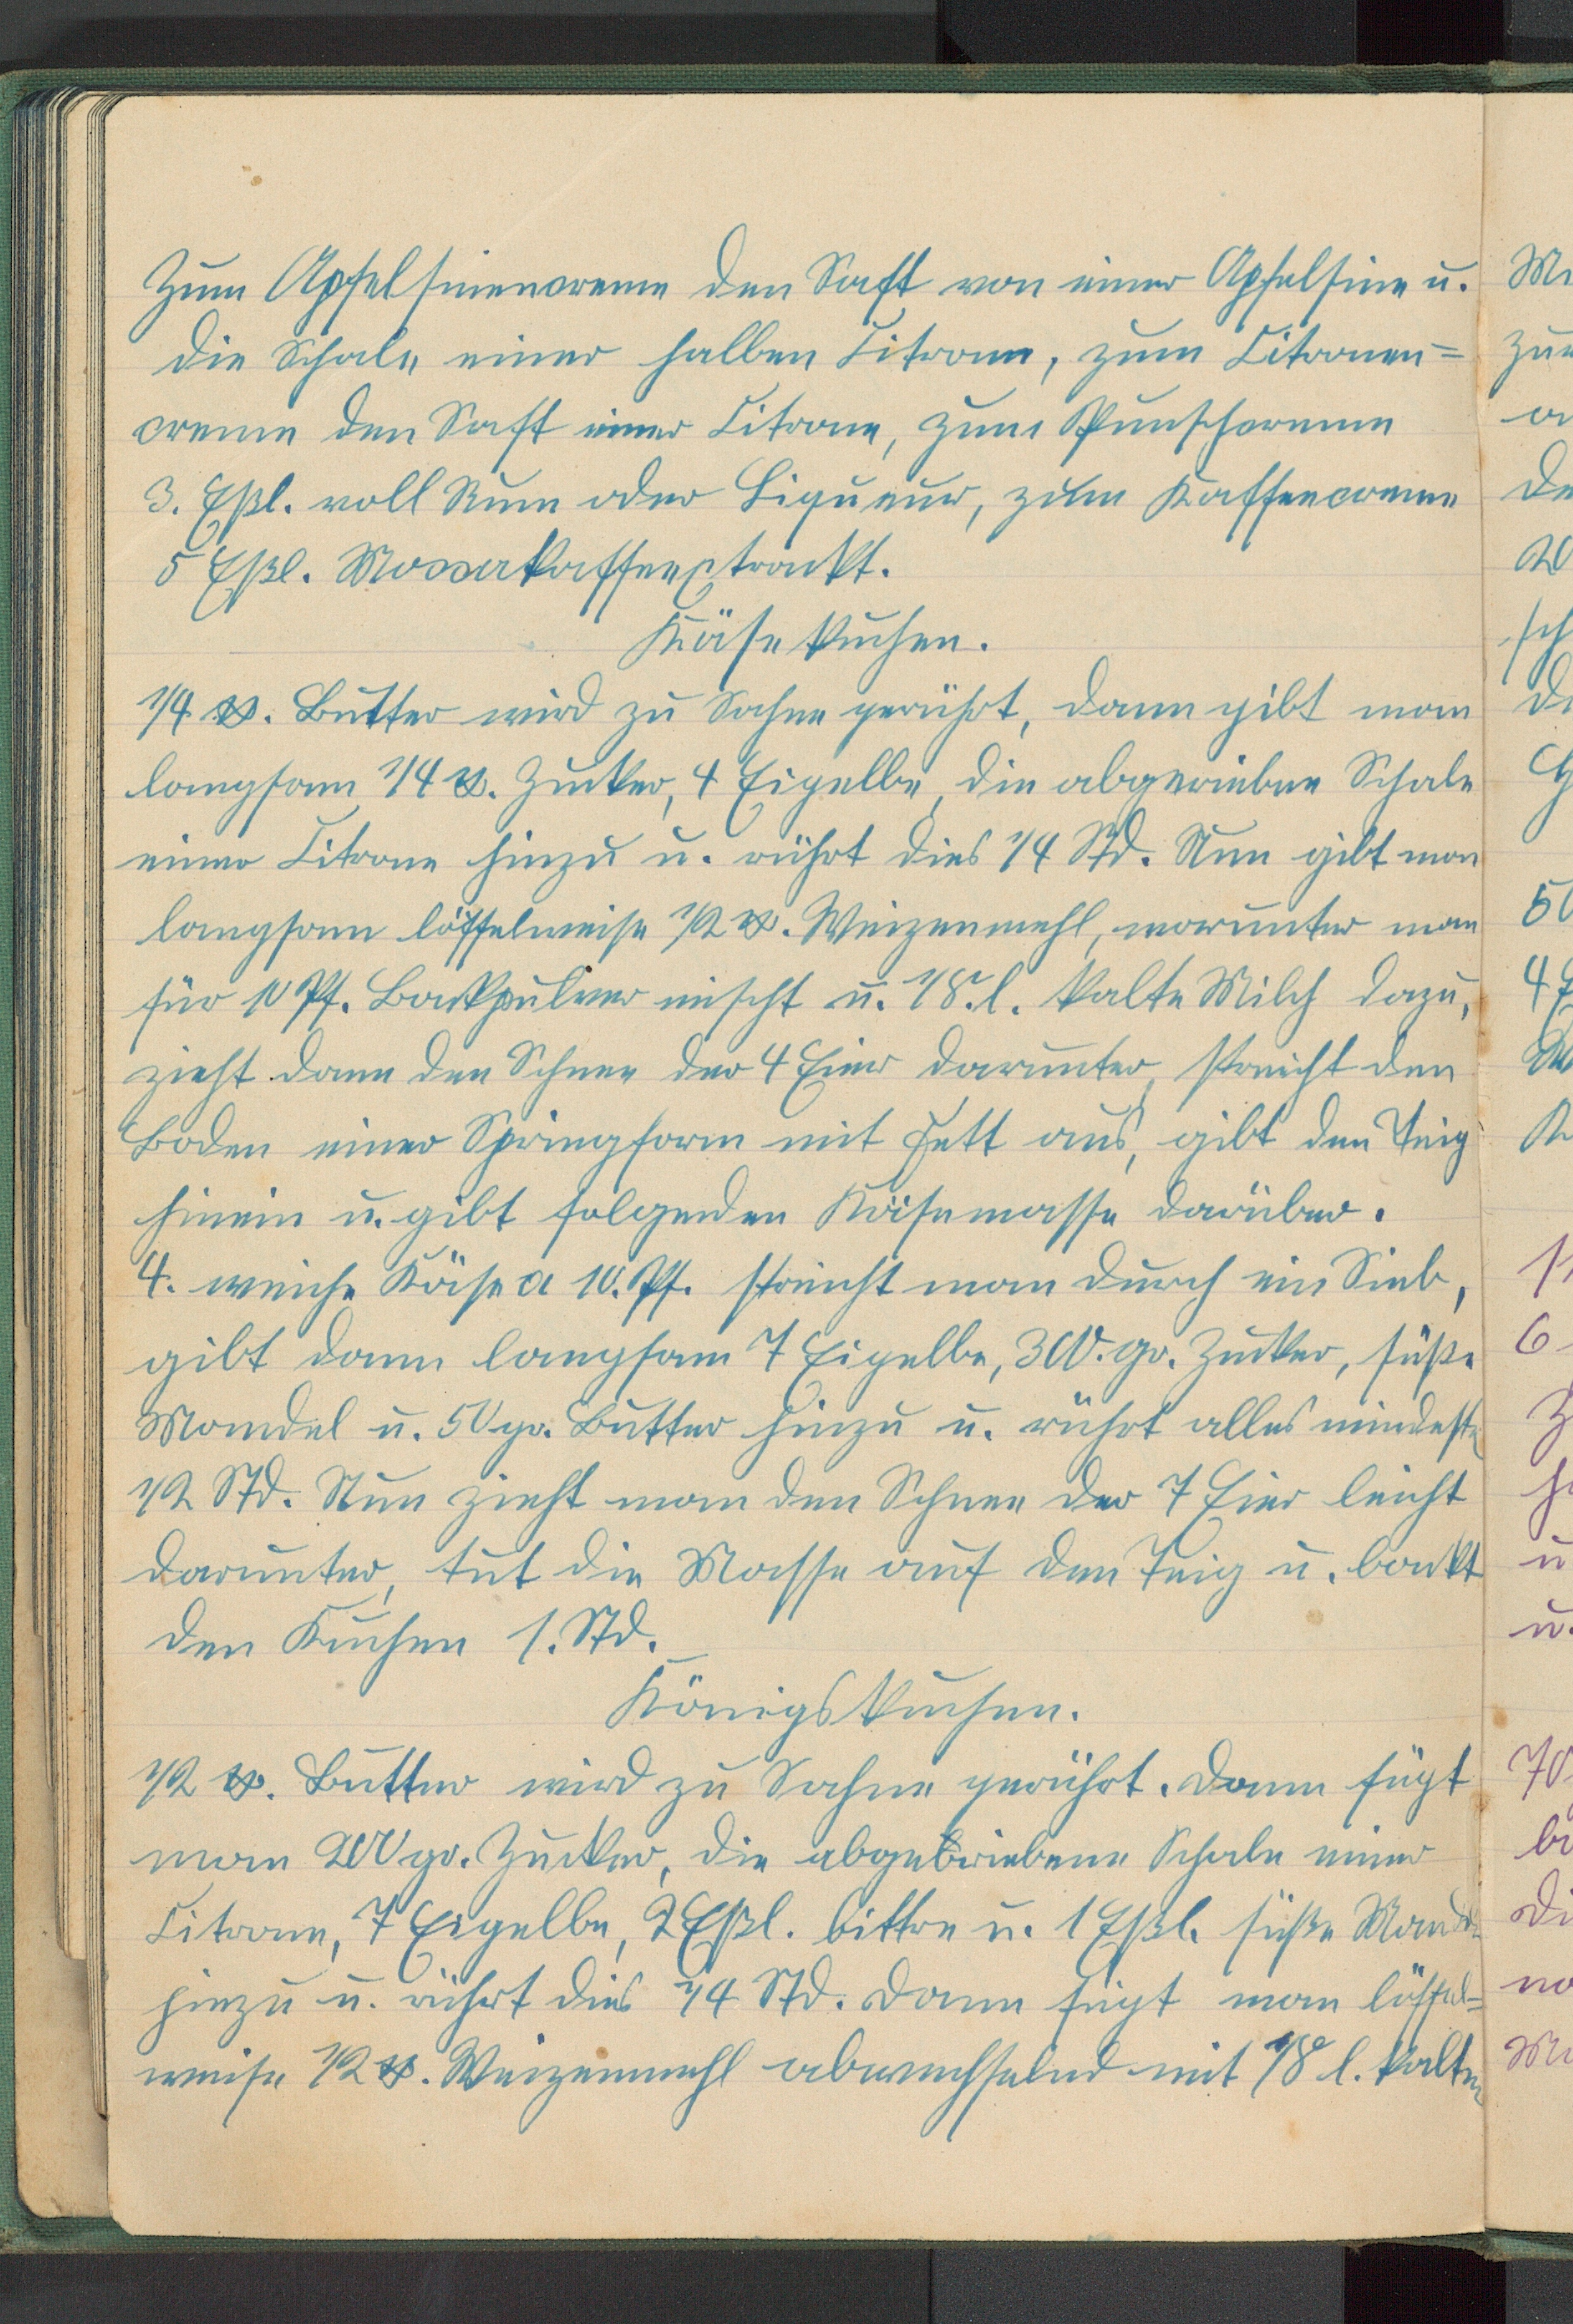 Zum Apfelsinencreme den Saft von einer Apfelsine u.
die Schale einer halben Citrone, zum Citronen=
creme den Saft einer Citrone, zum Punschcreme
3. Eßl. voll Rum oder Liqueur, zum Kaffeecreme
5 Eßl. Moccakaffeextrackt.
Käsekuchen.
1/4 ℔. Butter wird zu Sahne gerührt, dann gibt man
langsam 1/4 ℔. Zucker, 4 Eigelbe, die abgeriebne Schale
einer Citrone hinzu u. rührt dies 1/4 Std. Nun gibt man
langsam löffelweise 1/2 ℔. Weizenmehl, worunter man
für 10 Pf. Backpulver mischt u. 1/8. l. kalte Milch dazu,
zieht dann den Schnee der 4 Eier darunter, streicht den
Boden einer Springform mit Fett aus, gibt den Teig
hinein u. gibt folgenden Käsemasse darüber.
4. weiche Käse a 10. Pf. streicht man durch ein Sieb,
gibt dann langsam 7 Eigelbe, 300. gr. Zucker, süße
Mandel u. 50 gr. Butter hinzu u. rührt alles mindest
1/2 Std. Nun zieht man den Schnee der 7 Eier leicht
darunter, tut die Masse auf den Teig u. backt
den Kuchen 1. Std.
Königskuchen.
1/2 ℔. Butter wird zu Sahne gerührt. Dann fügt
man 200 gr. Zucker, die abgebriebene Schale einer
Citrone, 7 Eigelbe, 2 Eßl. bittre u. 1 Eßl. süße Mandel
hinzu u. rührt dies 1/4 Std. Dann fügt man löffel=
weise 1/2 ℔. Weizenmehl abwechselnd mit 1/8 l. kalten